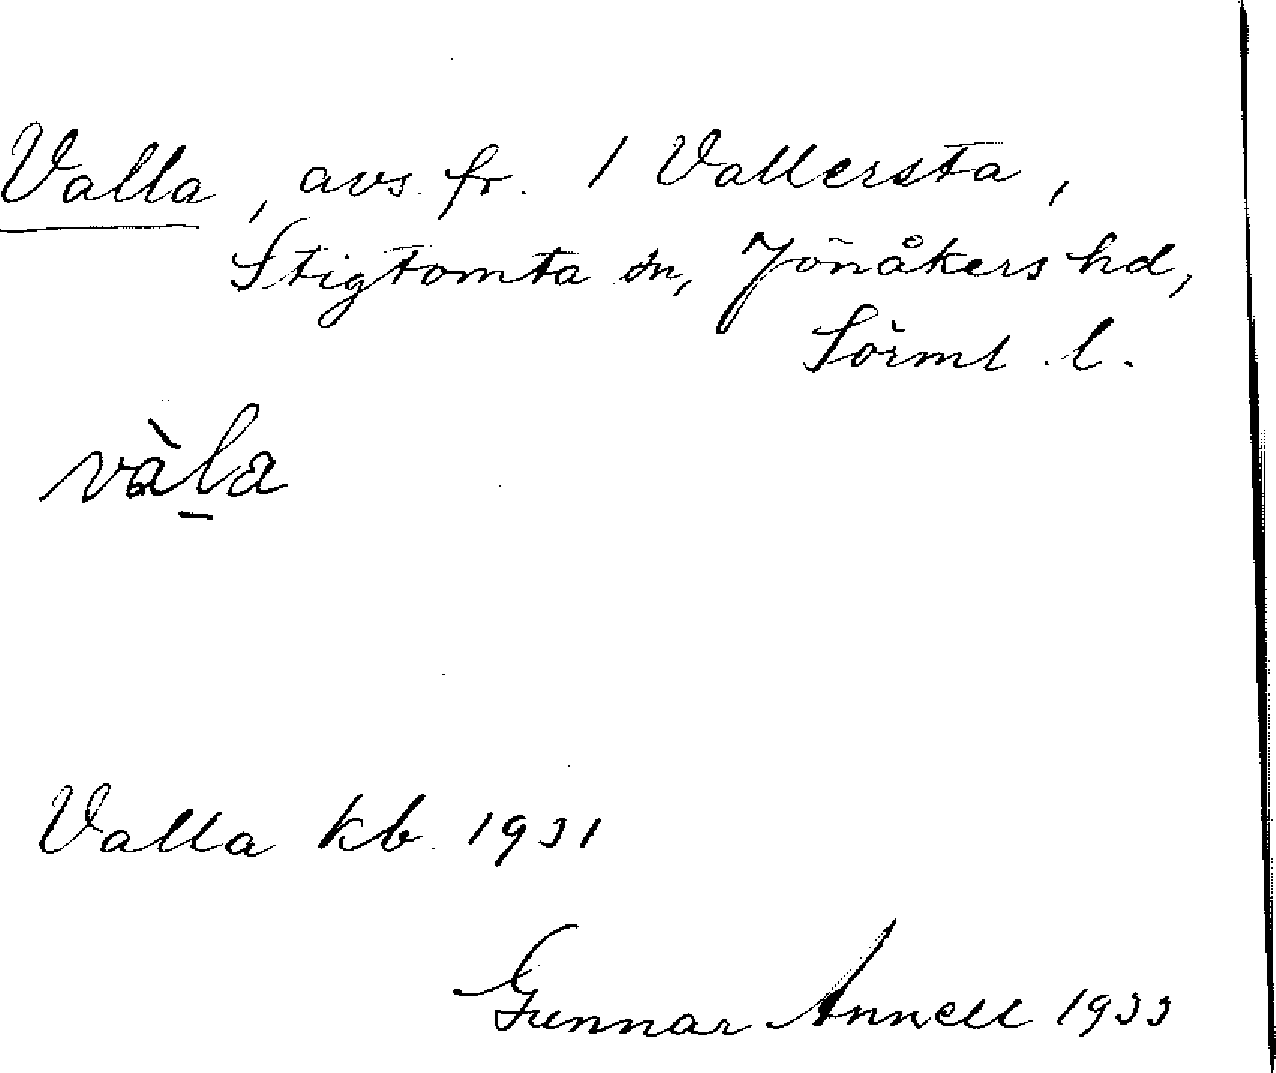 Valla, avs. fr. 1 Vallersta,
Stigtomta sn, Jönåkers hd,
Sörml. l.
vàl̠a
Valla kb. 1931
Gunnar Annell 1933